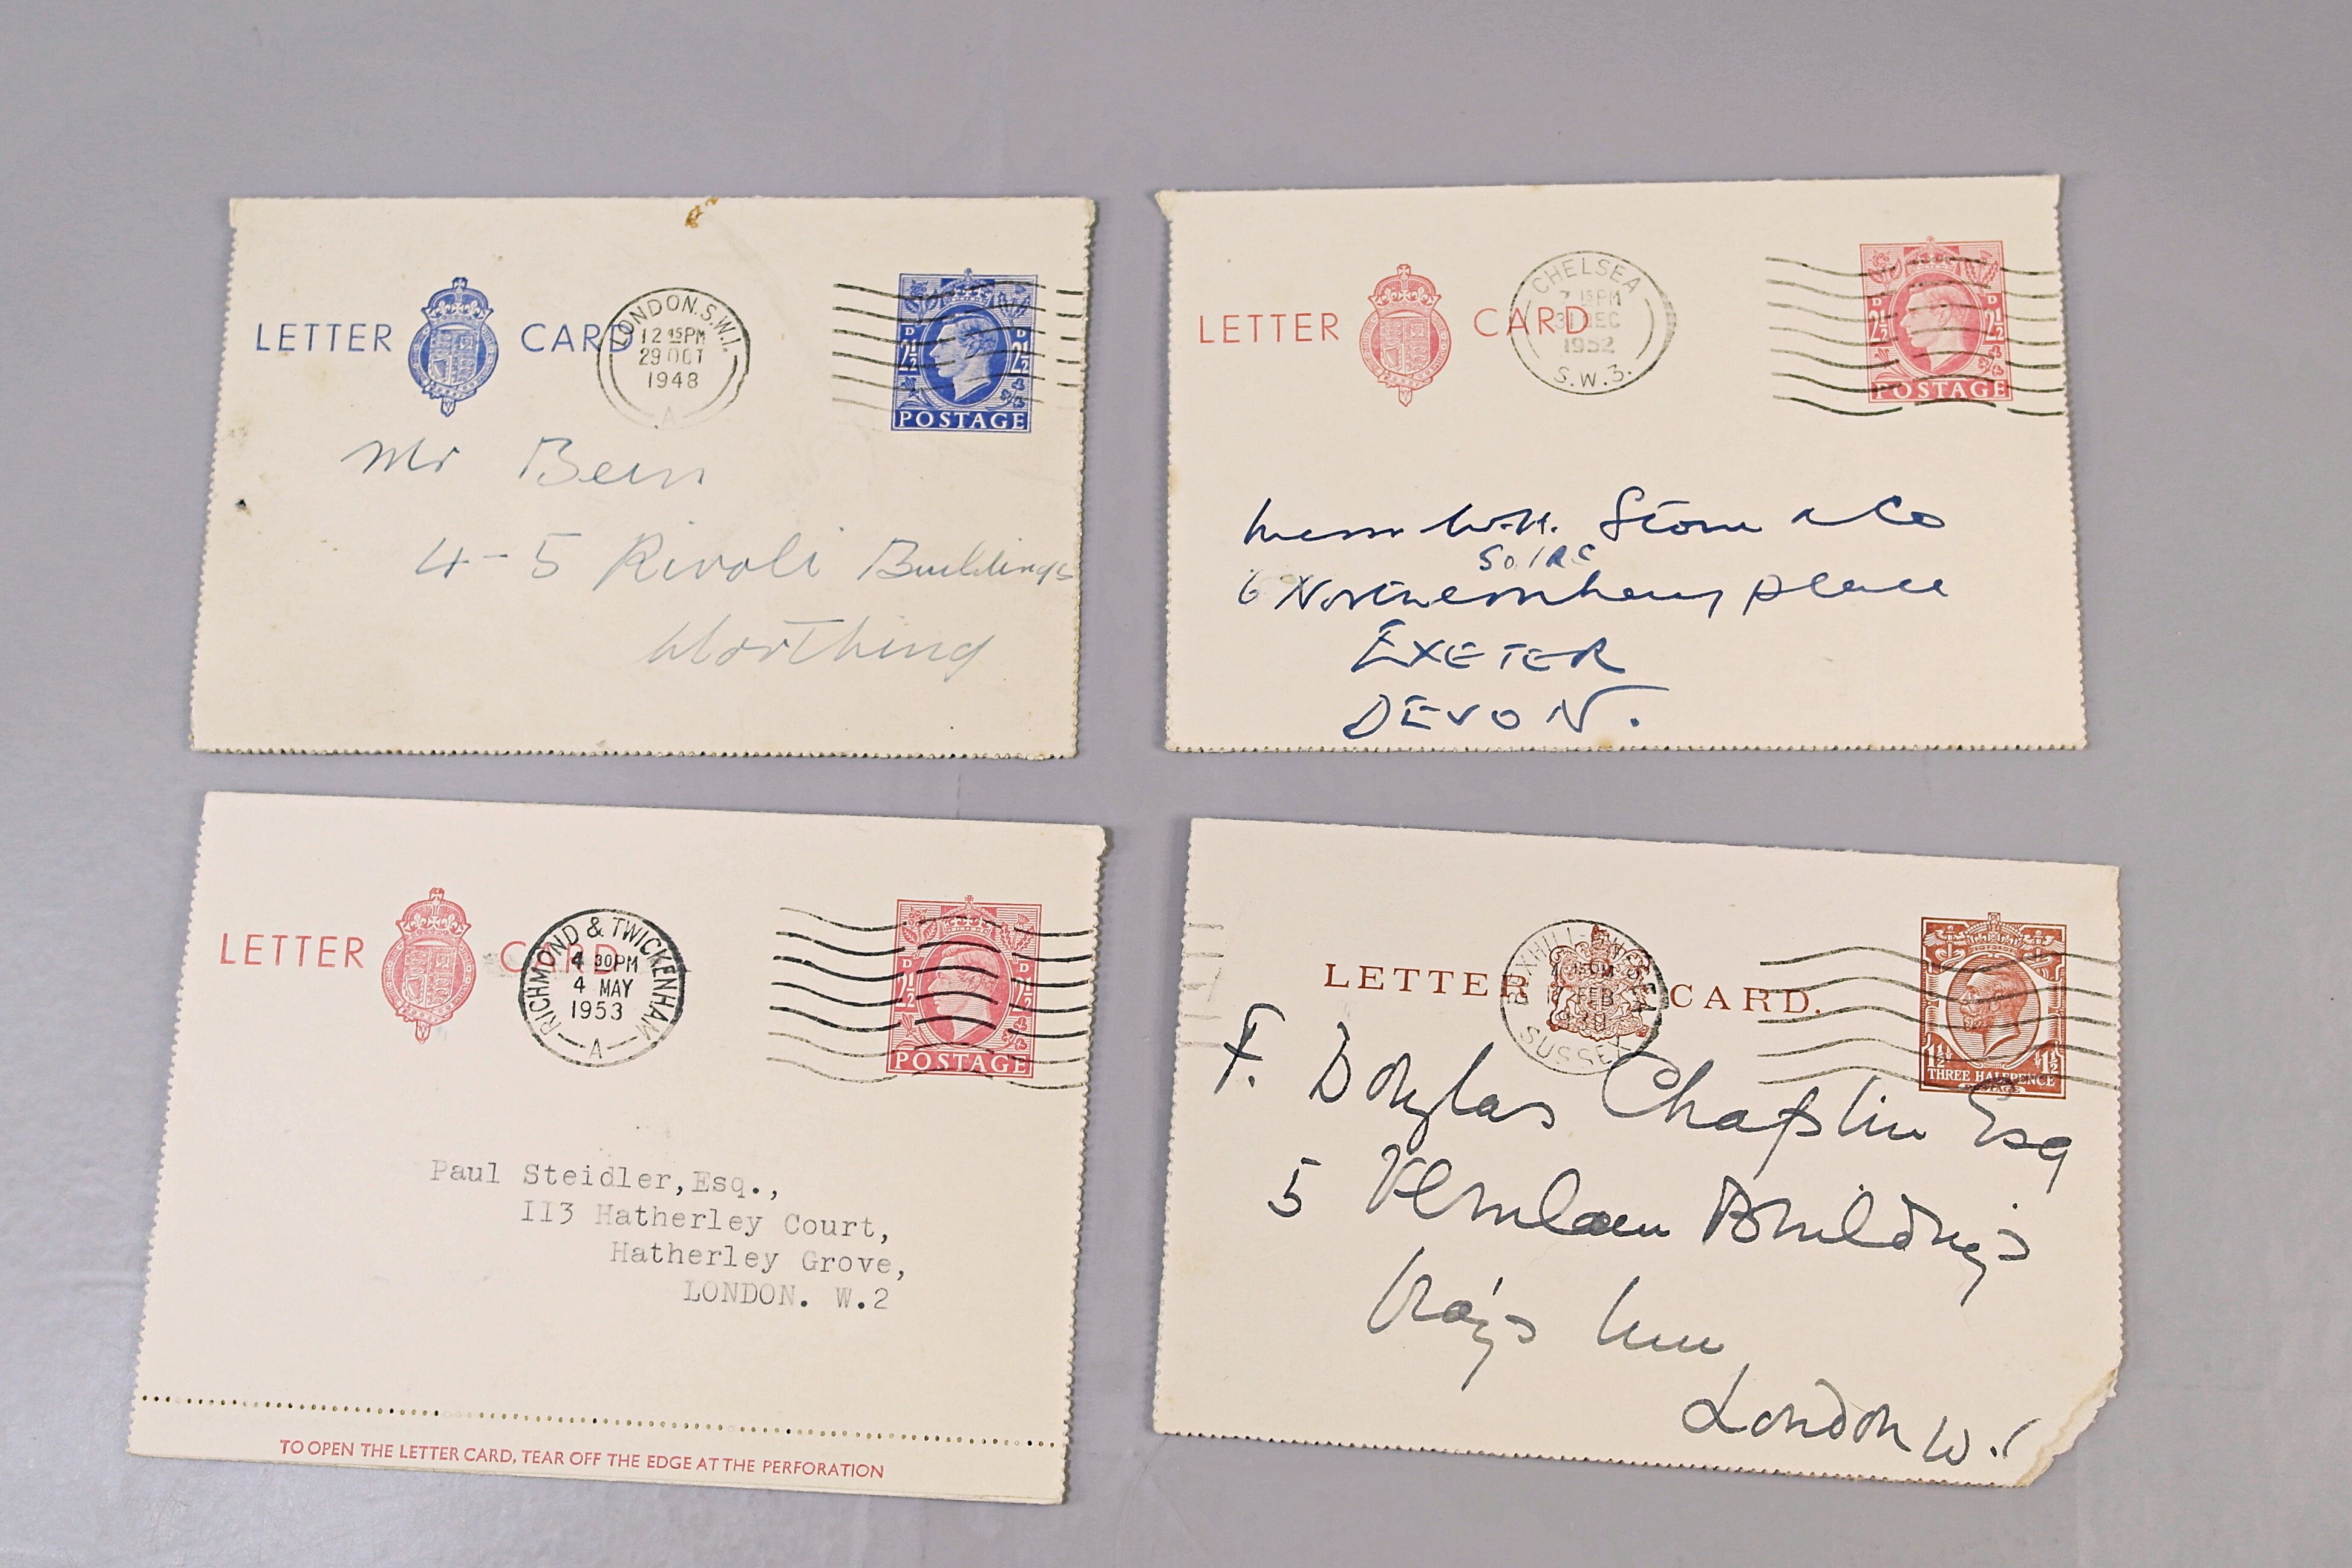 LETTER CARD
LONDON.S.W.1.
12 45PM
29 OCT
1948
A
2½D 2½D
POSTAGE
Mr Bein
4-5 Rivoli Buildings
Worthing
LETTER CARD
CHELSEA
7 15PM
31 DEC
1952
S.W.3.
2½D 2½D
POSTAGE
Messrs W.H. Stone & Co
6 Northernhay place
EXETER
DEVON.
LETTER CARD
RICHMOND & TWICKENHAM
4 30PM
4 MAY
1953
A
2½D 2½D
POSTAGE
Paul Steidler,Esq.,
113 Hatherley Court,
Hatherley Grove,
LONDON. W.2
TO OPEN THE LETTER CARD, TEAR OFF THE EDGE AT THE PERFORATION
LETTER CARD.
BEXHILL-ON-SEA
FEB
SUSSEX
1½ 1½
THREE HALFPENCE
POSTAGE
F. Douglas Chaplin Esq
5 Verulam Buildings
Gray's Inn
London W.1